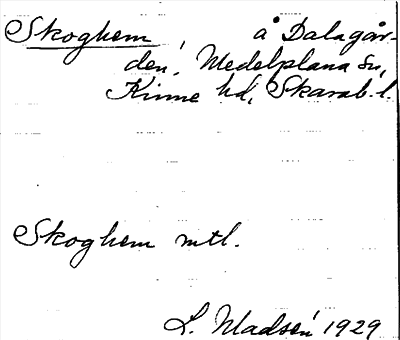 Skoghem, å Dalagår-
den, Medelplana sn,
Kinne hd, Skarab. l.
Skoghem mtl.
L. Madsén 1929